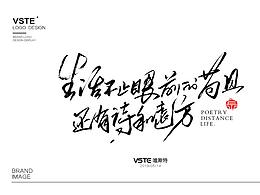 VSTE
LOGO DESIGN
生活不止眼前的苟且
还有诗和远方
POETRY
DISTANCE
LIFE.
VSTE 维斯特
BRAND
IMAGE